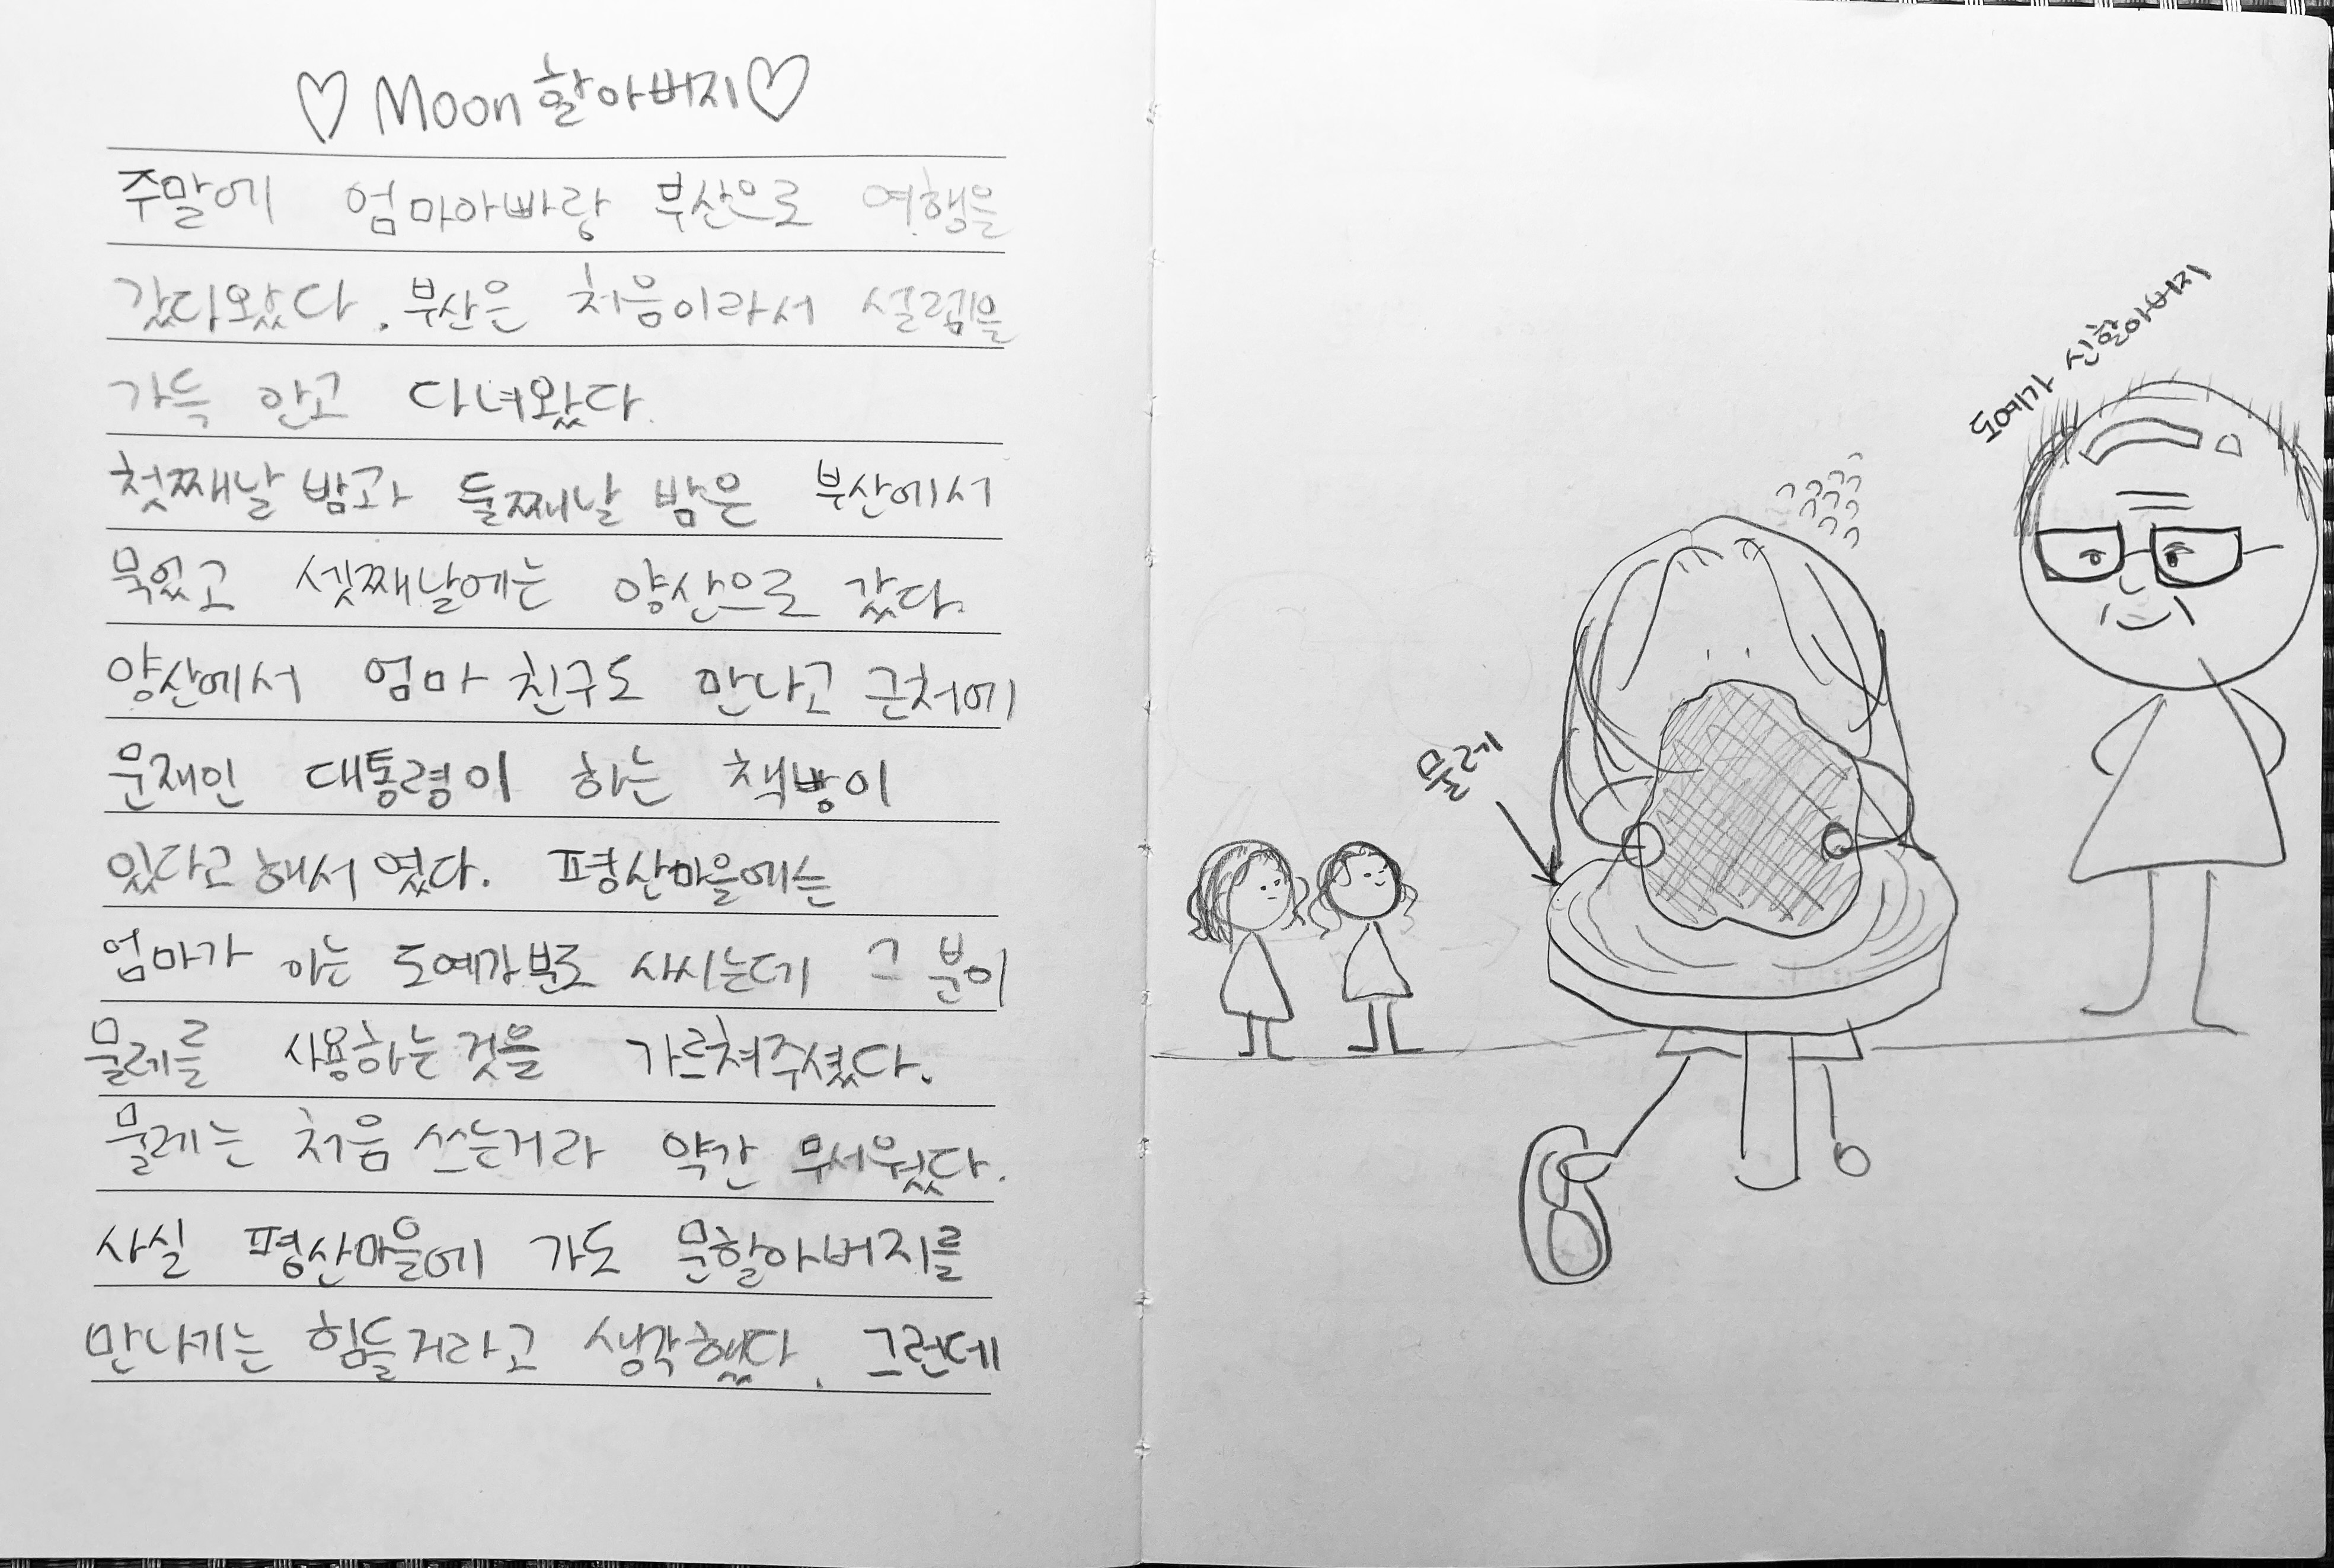 ♡ Moon 할아버지 ♡
주말에 엄마아빠랑 부산으로 여행을
갔다왔다. 부산은 처음이라서 설렘을
가득 안고 다녀왔다.
첫째날 밤과 둘째날 밤은 부산에서
묵었고 셋째날에는 양산으로 갔다.
양산에서 엄마 친구도 만나고 근처에
문재인 대통령이 하는 책방이
있다고 해서 였다. 평산마을에는
엄마가 아는 도예가 사시는데 그 분이
물레를 사용하는것을 가르쳐주셨다.
물레는 처음 쓰는거라 약간 무서웠다.
사실 평산마을에 가도 문할아버지를
만나기는 힘들거라고 생각했다. 그런데
도예가 신할아버지
물레